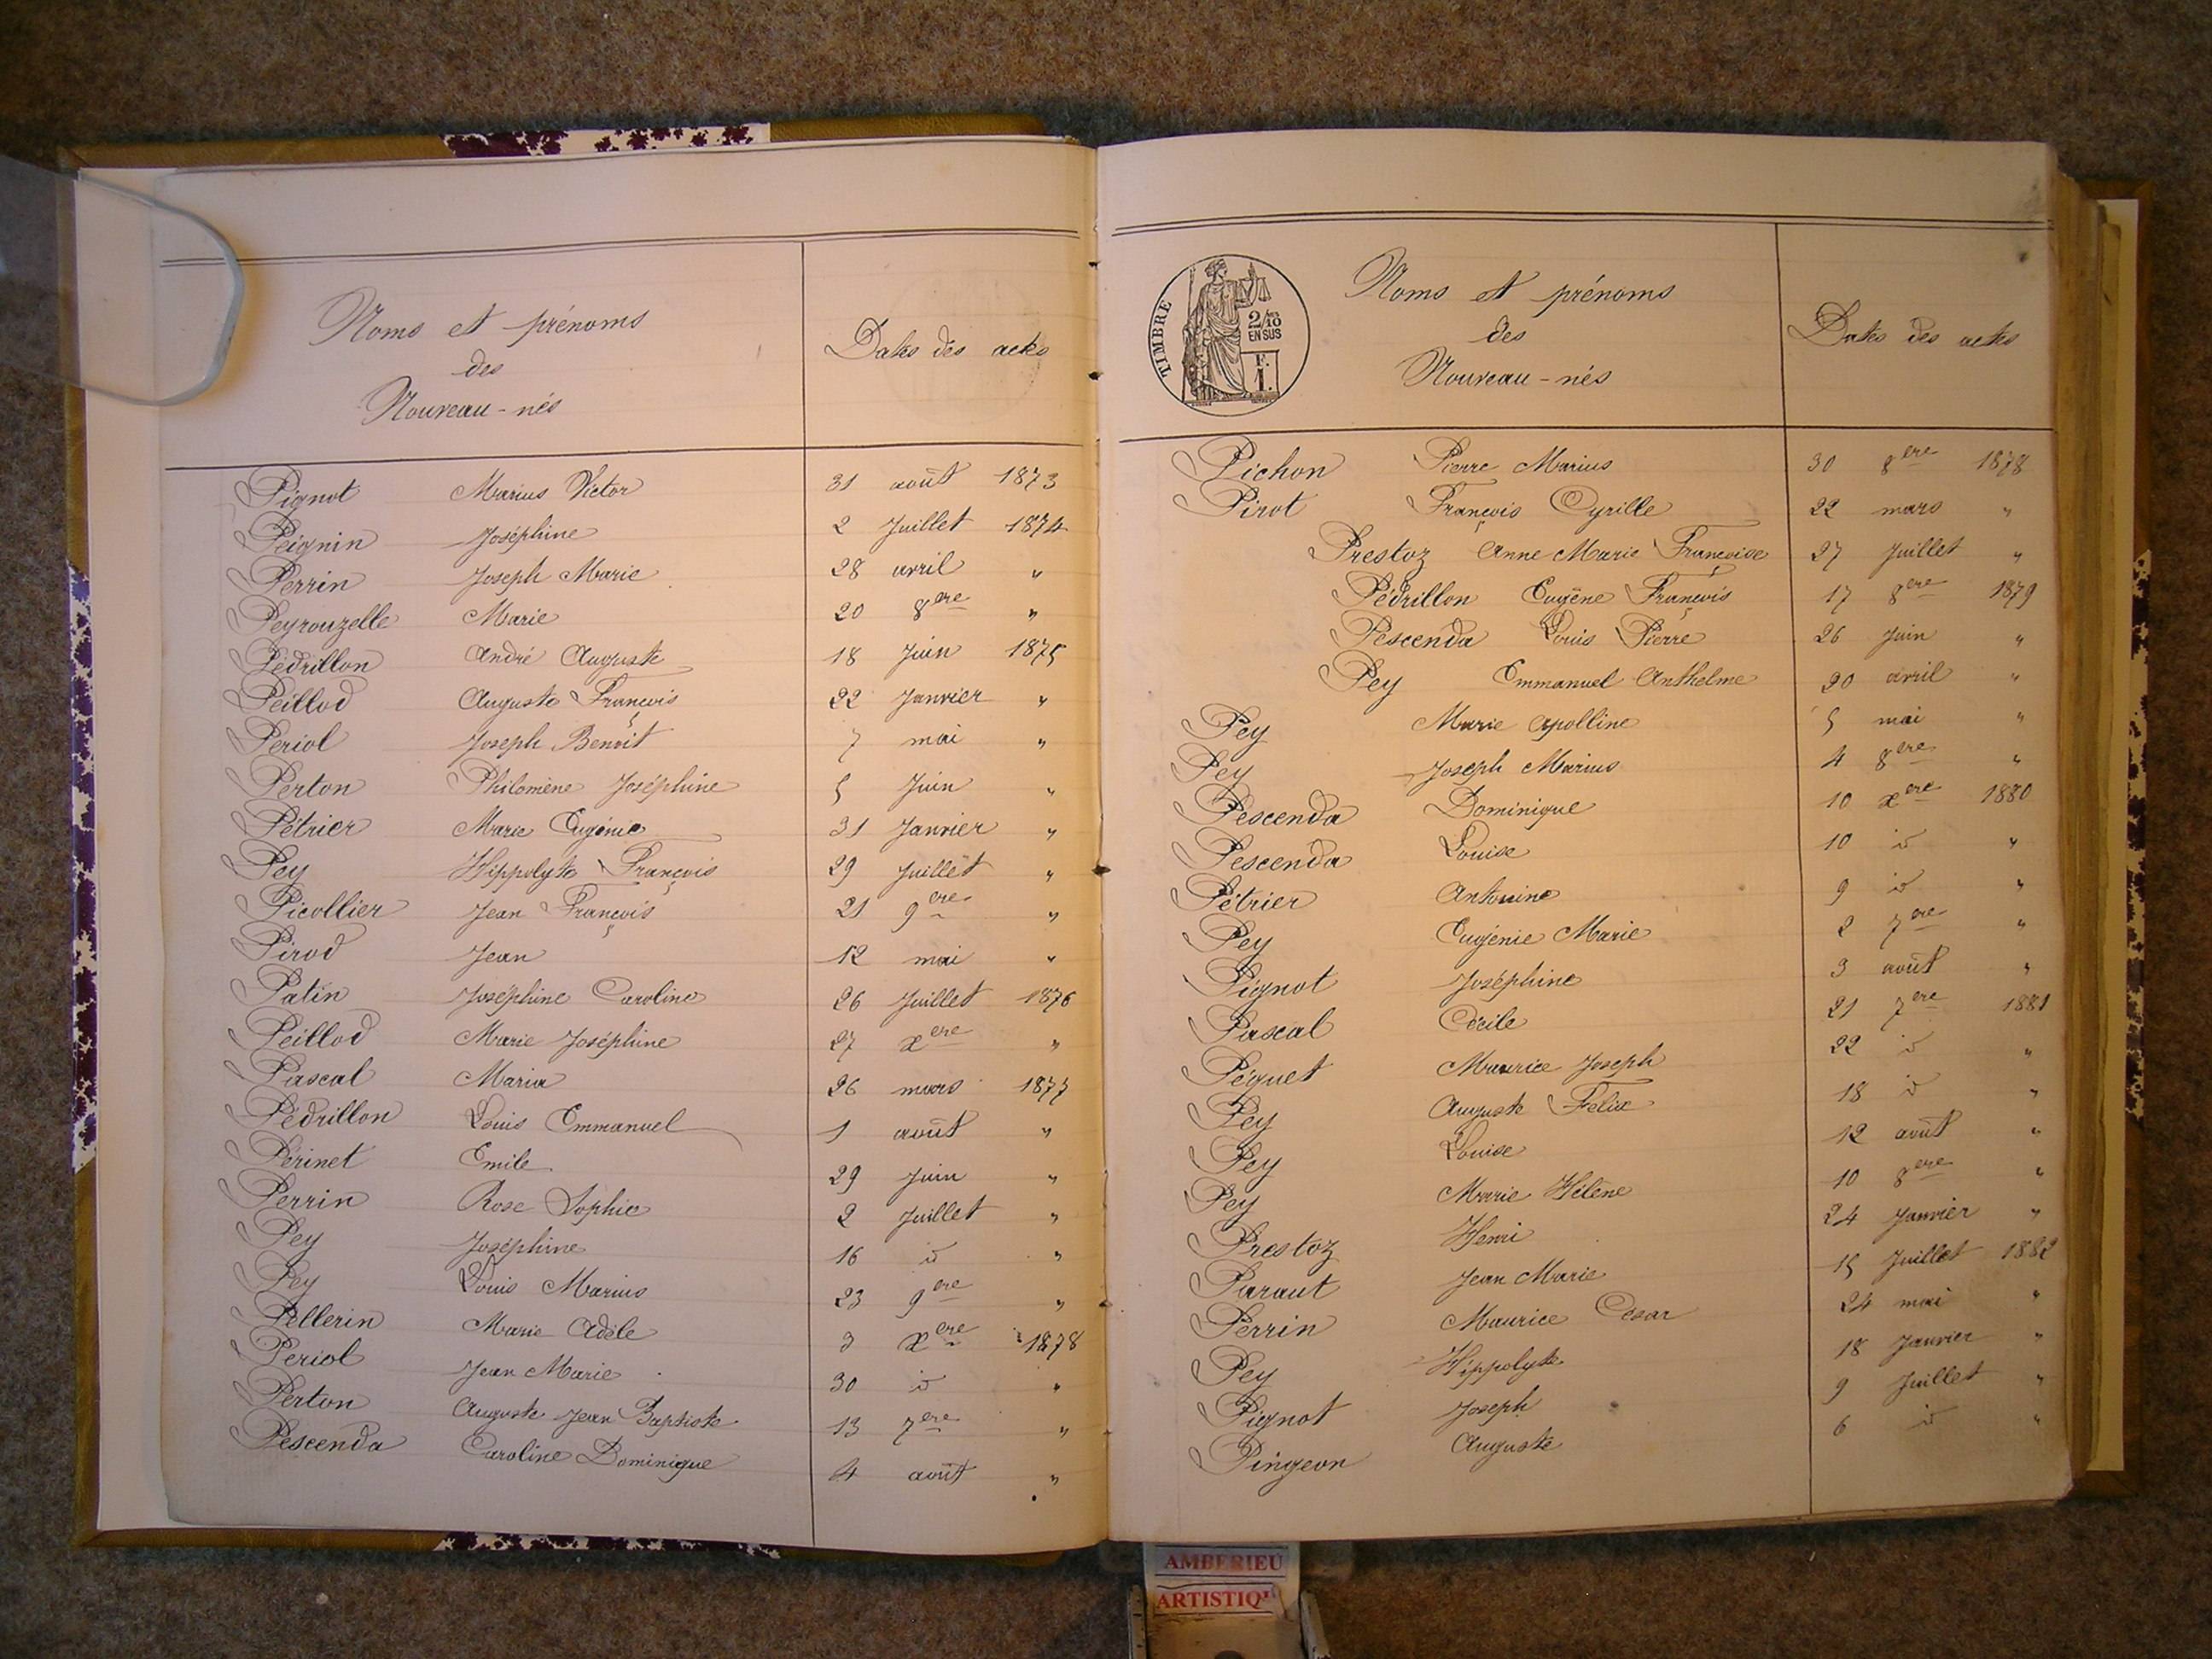 Noms et prénoms
des
Nouveau-nés
Dates des actes
Pignot Marius Victor 31 août 1873
Peignin Joséphine 2 Juillet 1874
Perrin Joseph Marie 28 avril "
Peyrouzelle Marie 20 8ere "
Pédrillon André Auguste 18 Juin 1875
Peillod Auguste François 22 Janvier "
Periol Joseph Benoit 7 mai "
Perton Philomène Joséphine 5 Juin "
Pétrier Marie Eugénie 31 Janvier "
Pey Hippolyte François 29 Juillet "
Picollier Jean François 21 9ere "
Pirod Jean 12 mai "
Patin Joséphine Caroline 26 Juillet 1876
Peillod Marie Joséphine 27 xere "
Pascal Maria 26 mars 1877
Pédrillon Louis Emmanuel 1 août "
Périnet Emile 29 Juin "
Perrin Rose Sophie 2 Juillet "
Pey Joséphine 16 id "
Pey Louis Marius 23 9ere "
Pellerin Marie Adèle 3 xere 1878
Periol Jean Marie 30 id "
Perton Auguste Jean Baptiste 13 7ere "
Pescenda Caroline Dominique 4 août "
TIMBRE
2/10es
EN SUS
F.
1.
Noms et prénoms
des
Nouveau-nés
Dates des actes
Pichon Pierre Marius 30 8ere 1878
Pirot François Cyrille 22 mars "
Prestoz Anne Marie Françoise 27 Juillet "
Pédrillon Eugène François 17 8ere 1879
Pescenda Louis Pierre 26 Juin "
Pey Emmanuel Anthelme 20 avril "
Pey Marie Apolline 5 mai "
Pey Joseph Marius 4 8ere "
Pescenda Dominique 10 xere 1880
Pescenda Louise 10 id "
Pétrier Antonine 9 id "
Pey Eugénie Marie 2 7ere "
Pignot Joséphine 3 août "
Pascal Cécile 21 7ere 1881
Péguet Maurice Joseph 22 id "
Pey Auguste Félix 18 id "
Pey Louise 12 août "
Pey Marie Hélène 10 8ere "
Prestoz Henri 24 Janvier "
Paraut Jean Marie 15 Juillet 1882
Perrin Maurice Cesar 24 mai "
Pey Hippolyte 18 Janvier "
Pignot Joseph 9 Juillet "
Pingeon Auguste 6 id "
AMBERIEU
ARTISTIQU